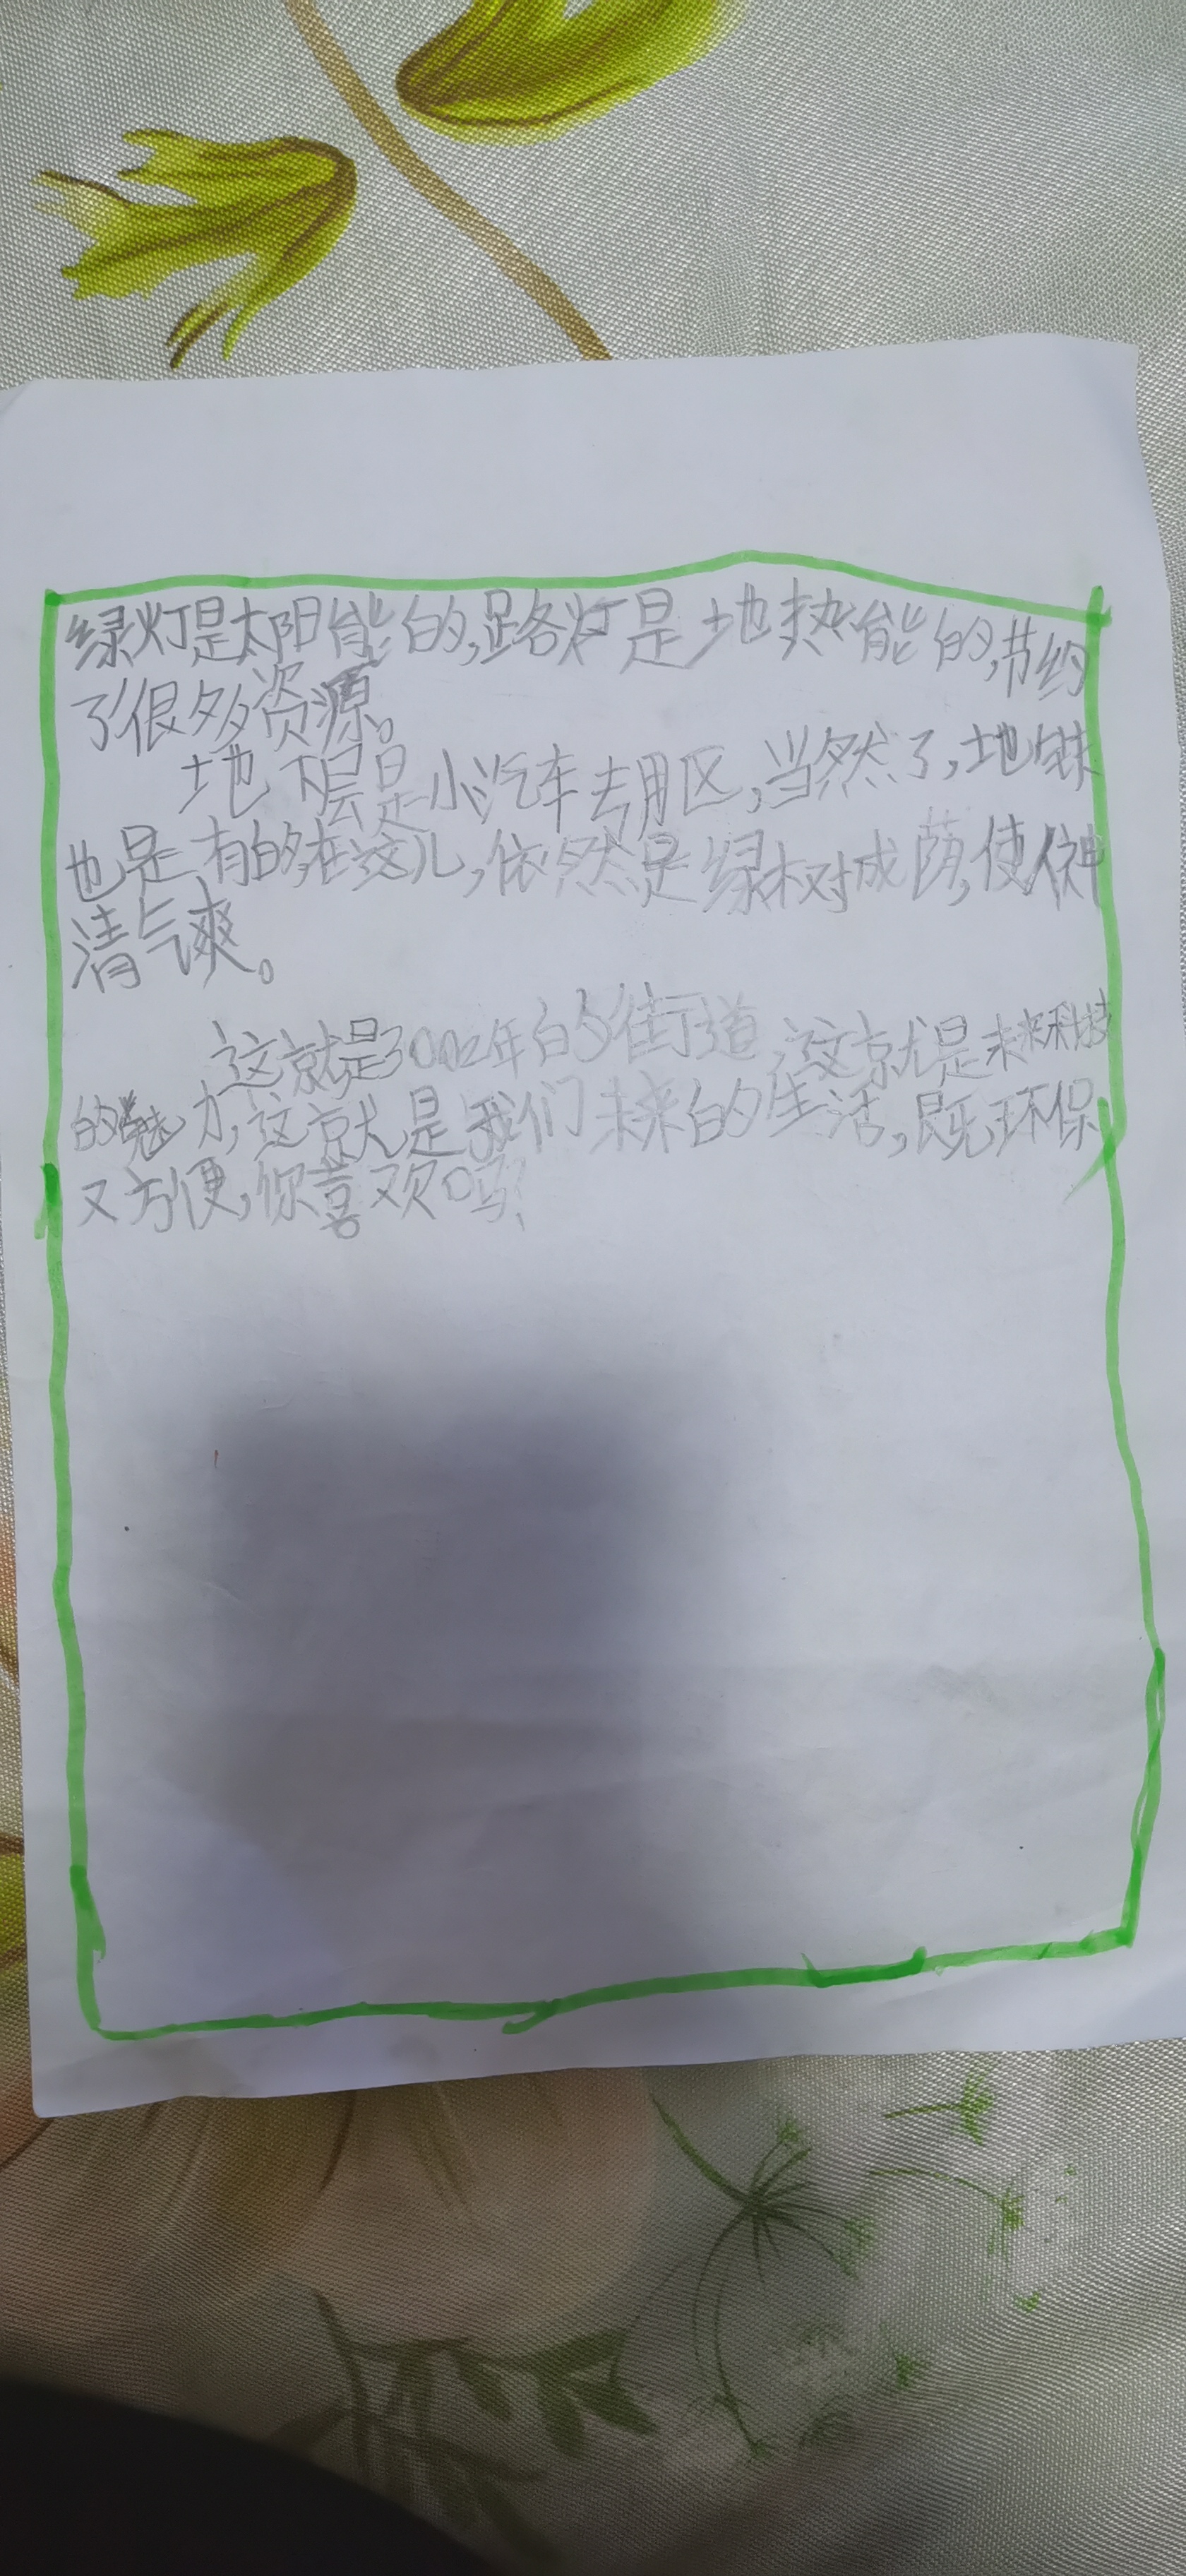 绿灯是太阳能的,路灯是地热能的,节约
了很多资源。
地下层是小汽车专用区,当然了,地铁
也是有的,在这儿,依然是绿树成荫,使人神
清气爽。
这就是3002年的街道,这就是未来科技
的魅力,这就是我们未来的生活,既环保
又方便,你喜欢吗?